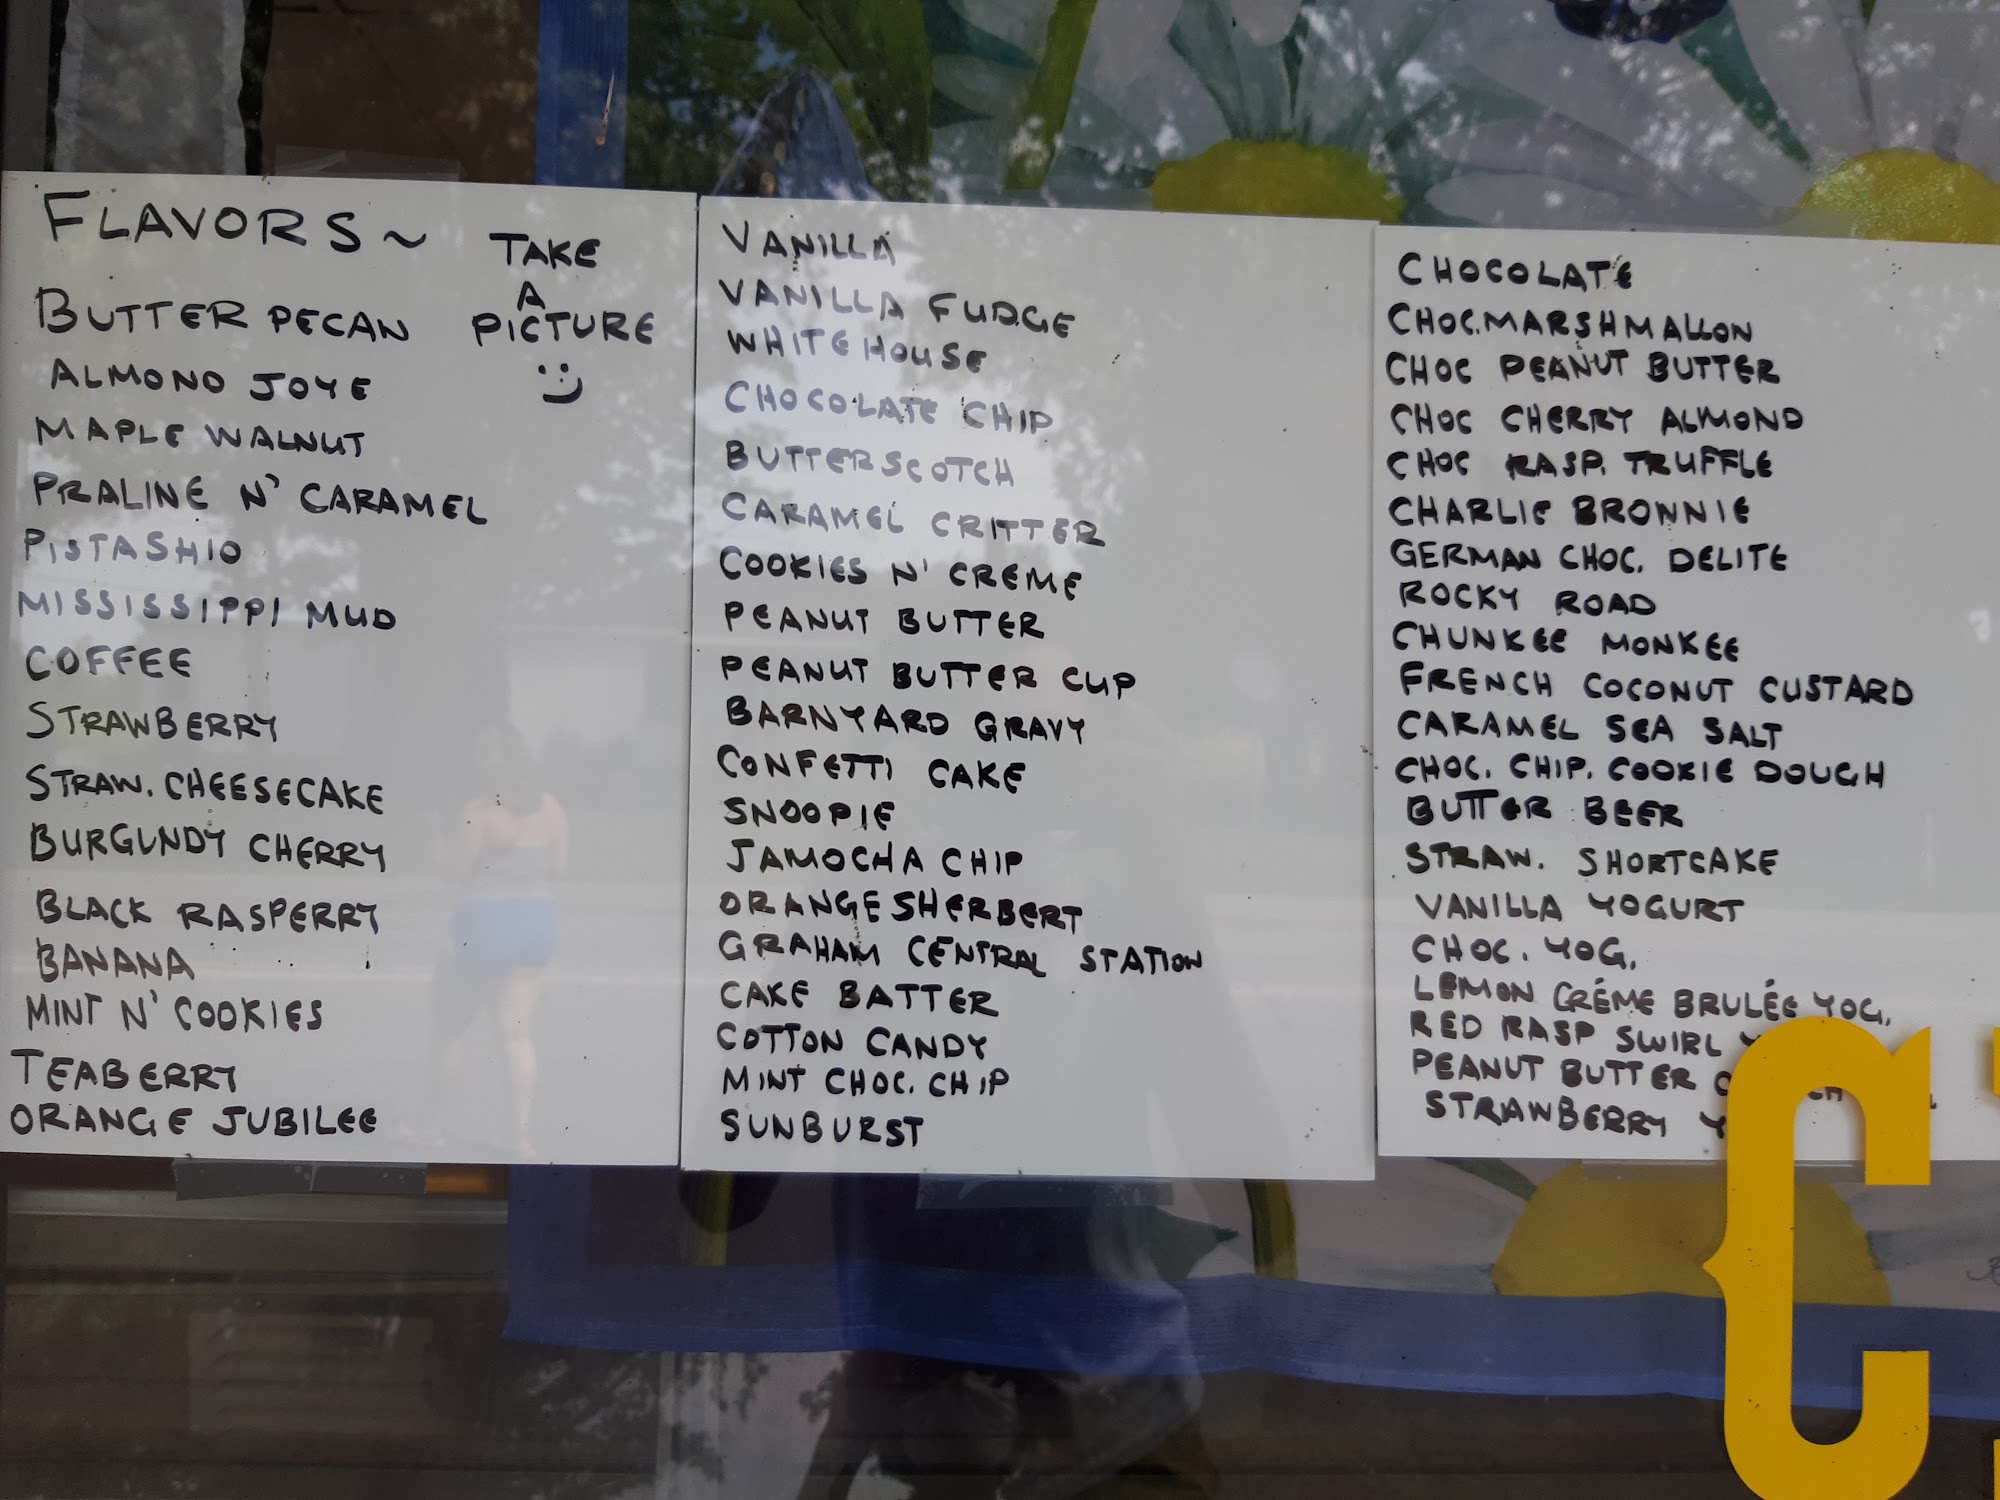 FLAVORS~
TAKE
A
PICTURE
BUTTER PECAN
ALMOND JOYE
MAPLE WALNUT
PRALINE N' CARAMEL
PISTASHIO
MISSISSIPPI MUD
COFFEE
STRAWBERRY
STRAW. CHEESECAKE
BURGUNDY CHERRY
BLACK RASPERRY
BANANA
MINT N' COOKIES
TEABERRY
ORANGE JUBILEE
VANILLA
VANILLA FUDGE
WHITE HOUSE
CHOCOLATE CHIP
BUTTERSCOTCH
CARAMEL CRITTER
COOKIES N' CREME
PEANUT BUTTER
PEANUT BUTTER CUP
BARNYARD GRAVY
CONFETTI CAKE
SNOOPIE
JAMOCHA CHIP
ORANGE SHERBERT
GRAHAM CENTRAL STATION
CAKE BATTER
COTTON CANDY
MINT CHOC. CHIP
SUNBURST
CHOCOLATE
CHOC. MARSHMALLON
CHOC PEANUT BUTTER
CHOC CHERRY ALMOND
CHOC RASP. TRUFFLE
CHARLIE BRONNIE
GERMAN CHOC. DELITE
ROCKY ROAD
CHUNKEE MONKEE
FRENCH COCONUT CUSTARD
CARAMEL SEA SALT
CHOC. CHIP. COOKIE DOUGH
BUTTER BEER
STRAW. SHORTCAKE
VANILLA YOGURT
CHOC. YOG.
LEMON CRÉME BRULÉE YOG.
RED RASP SWIRL
PEANUT BUTTER
STRAWBERRY
C